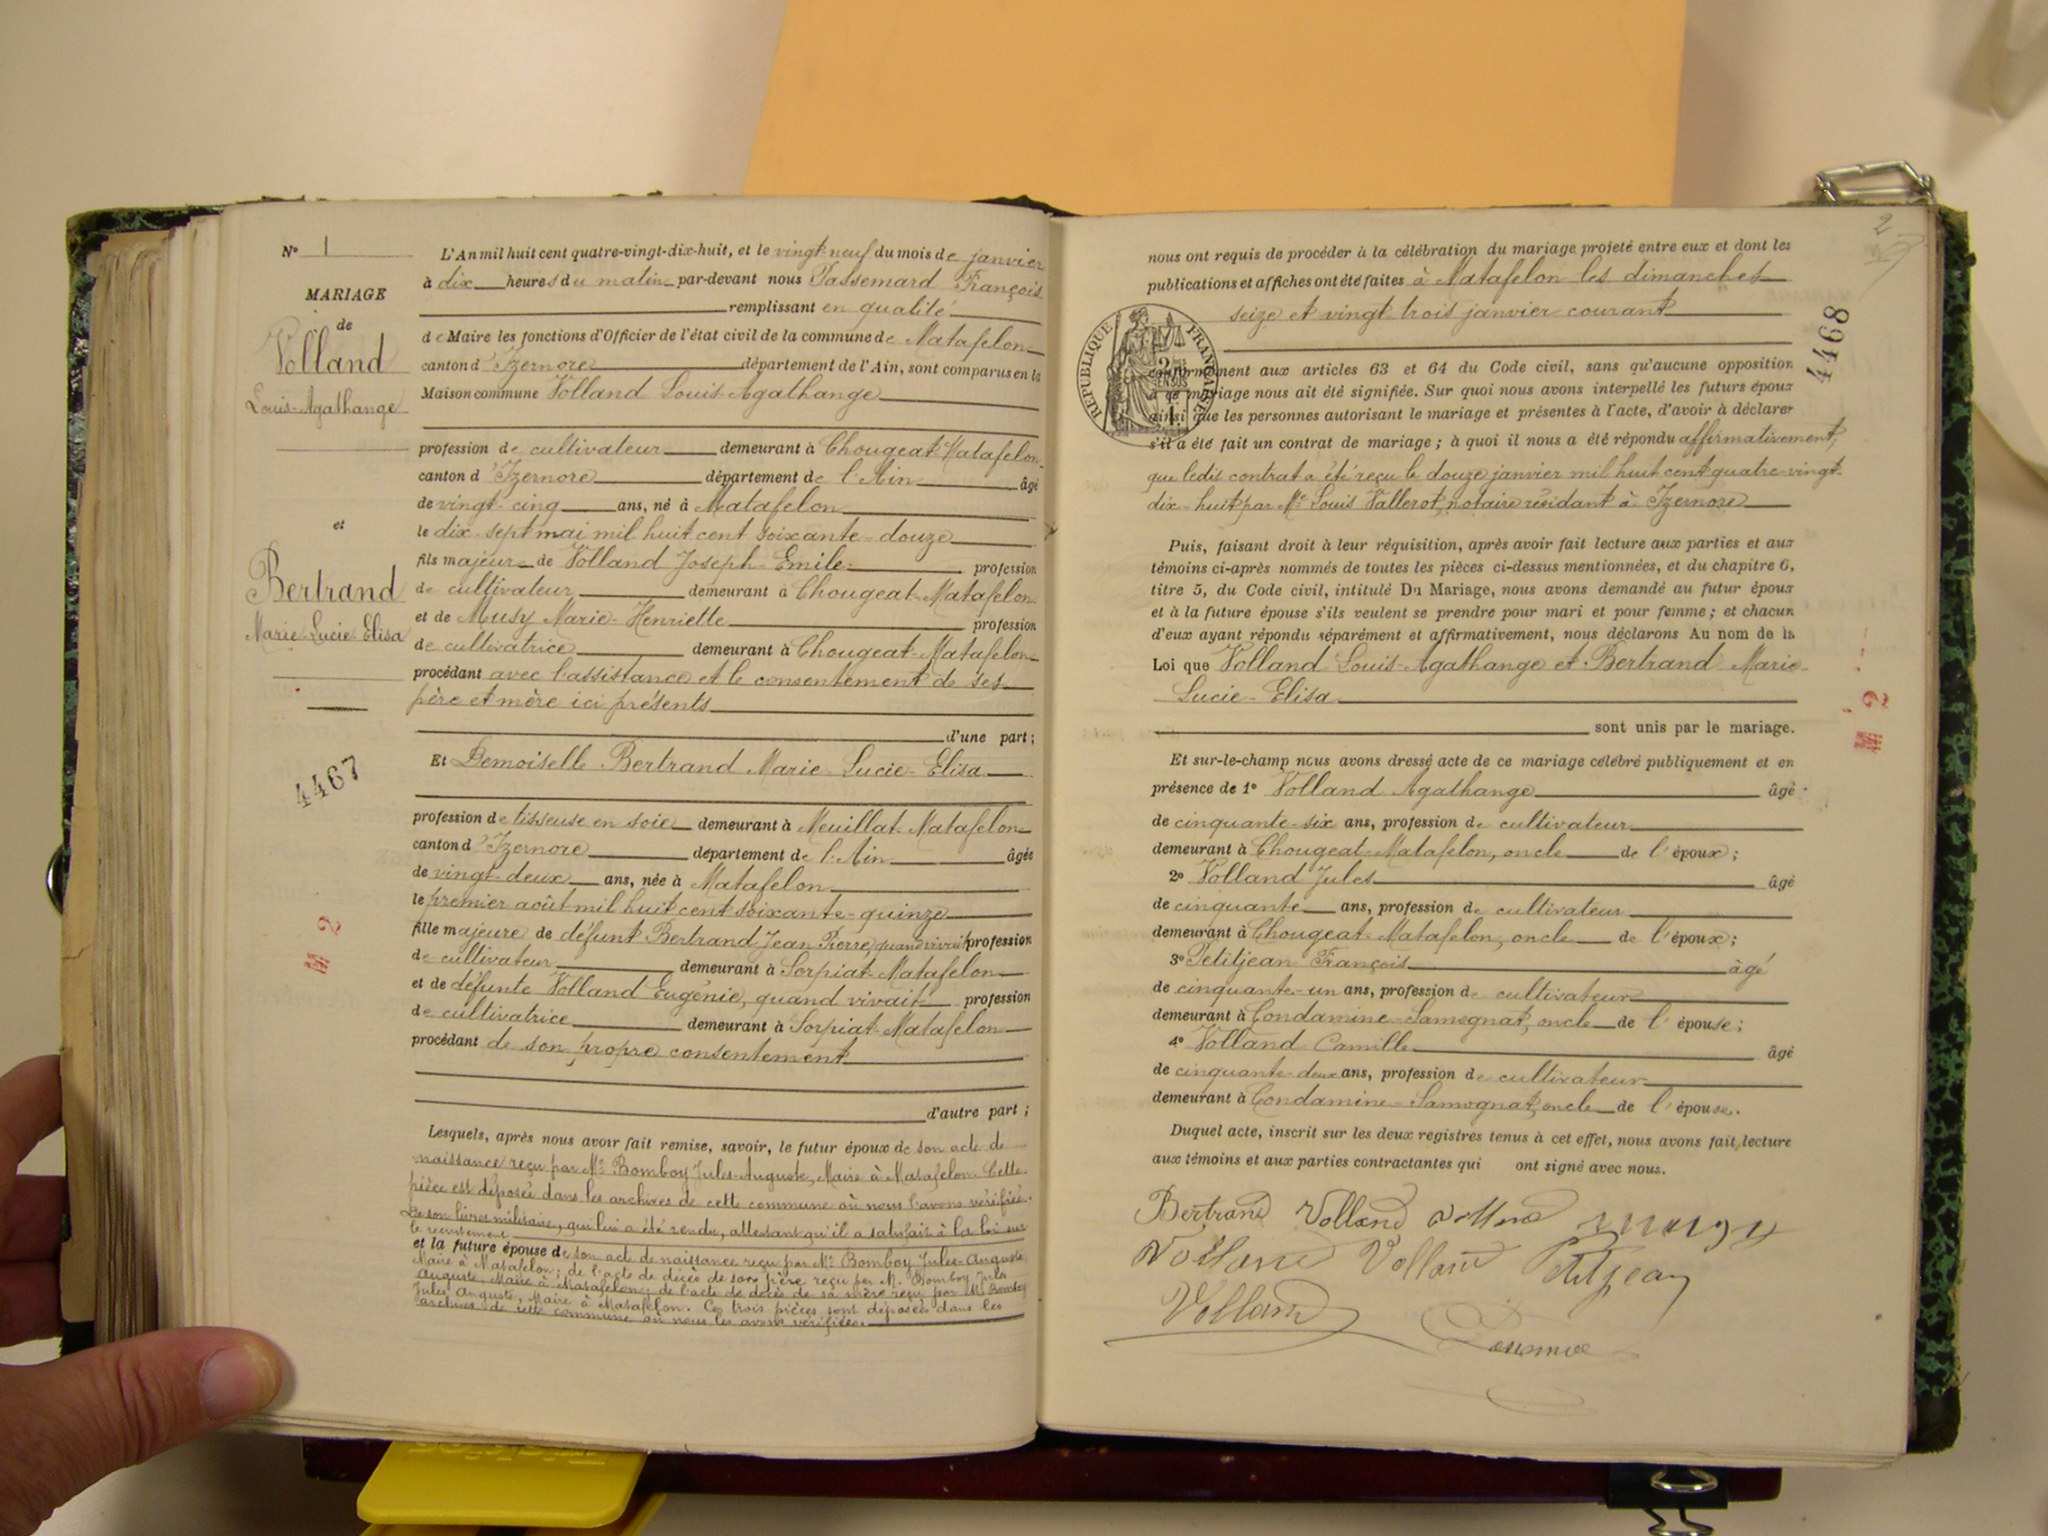 N° 1
MARIAGE
de
Volland
Louis-Agathange
et
Bertrand
Marie-Lucie-Elisa
4467
M 2
L'An mil huit cent quatre-vingt-dix-huit, et le vingt-neuf du mois de janvier
à dix heures du matin par-devant nous Passemard François
remplissant en qualité
de Maire les fonctions d'Officier de l'état civil de la commune de Matafelon
canton d'Izernore département de l'Ain, sont comparus en la
Maison commune Volland Louis-Agathange
profession de cultivateur demeurant à Chougeat-Matafelon
canton d'Izernore département de l'Ain âgé
de vingt-cinq ans, né à Matafelon
le dix-sept mai mil huit cent soixante-douze
fils majeur de Volland Joseph-Emile profession
de cultivateur demeurant à Chougeat-Matafelon
et de Musy Marie-Henriette profession
de cultivatrice demeurant à Chougeat-Matafelon
procédant avec l'assistance et le consentement de ses
père et mère ici présents
d'une part ;
Et Demoiselle Bertrand Marie-Lucie-Elisa
profession de tisseuse en soie demeurant à Meuillat-Matafelon
canton d'Izernore département de l'Ain âgée
de vingt-deux ans, née à Matafelon
le premier août mil huit cent soixante-quinze
fille majeure de défunt Bertrand Jean Pierre, quand vivait profession
de cultivateur demeurant à Sorpiat-Matafelon
et de défunte Volland Eugénie, quand vivait profession
de cultivatrice demeurant à Sorpiat-Matafelon
procédant de son propre consentement
d'autre part ;
Lesquels, après nous avoir fait remise, savoir, le futur époux de son acte de
naissance reçu par Mr Bomboy Jules-Auguste, Maire à Matafelon. Cette
pièce est déposée dans les archives de cette commune où nous l'avons vérifiée.
De son livret militaire, qui lui a été rendu, attestant qu'il a satisfait à la loi sur
le recrutement
et la future épouse de son acte de naissance reçu par Mr Bomboy Jules-Auguste
Maire à Matafelon ; de l'acte de décès de son père reçu par M. Bomboy Jules
Auguste, Maire à Matafelon ; de l'acte de décès de sa mère reçu par Mr Bomboy
Jules Auguste, Maire à Matafelon. Ces trois pièces sont déposées dans les
archives de cette commune où nous les avons vérifiées.
2
nous ont requis de procéder à la célébration du mariage projeté entre eux et dont les
publications et affiches ont été faites à Matafelon les dimanches
seize et vingt-trois janvier courant
RÉPUBLIQUE FRANÇAISE
4468
conformément aux articles 63 et 64 du Code civil, sans qu'aucune opposition
à ce mariage nous ait été signifiée. Sur quoi nous avons interpellé les futurs époux
ainsi que les personnes autorisant le mariage et présentes à l'acte, d'avoir à déclarer
s'il a été fait un contrat de mariage ; à quoi il nous a été répondu affirmativement,
que ledit contrat a été reçu le douze janvier mil huit cent quatre-vingt-
dix-huit par Me Louis Vallerot, notaire résidant à Izernore
Puis, faisant droit à leur réquisition, après avoir fait lecture aux parties et aux
témoins ci-après nommés de toutes les pièces ci-dessus mentionnées, et du chapitre 6,
titre 5, du Code civil, intitulé Du Mariage, nous avons demandé au futur époux
et à la future épouse s'ils veulent se prendre pour mari et pour femme ; et chacun
d'eux ayant répondu séparément et affirmativement, nous déclarons Au nom de la
Loi que Volland Louis-Agathange et Bertrand Marie-
Lucie-Elisa
sont unis par le mariage.
M 2
Et sur-le-champ nous avons dressé acte de ce mariage célébré publiquement et en
présence de 1° Volland Agathange âgé
de cinquante-six ans, profession de cultivateur
demeurant à Chougeat-Matafelon, oncle de l'époux ;
2° Volland Jules âgé
de cinquante ans, profession de cultivateur
demeurant à Chougeat-Matafelon, oncle de l'époux ;
3° Petitjean François âgé
de cinquante-un ans, profession de cultivateur
demeurant à Condamine-Samognat, oncle de l'épouse ;
4° Volland Camille âgé
de cinquante-deux ans, profession de cultivateur
demeurant à Condamine-Samognat, oncle de l'épouse.
Duquel acte, inscrit sur les deux registres tenus à cet effet, nous avons fait lecture
aux témoins et aux parties contractantes qui ont signé avec nous.
Bertrand Volland Volland
Volland Volland Petitjean
Volland